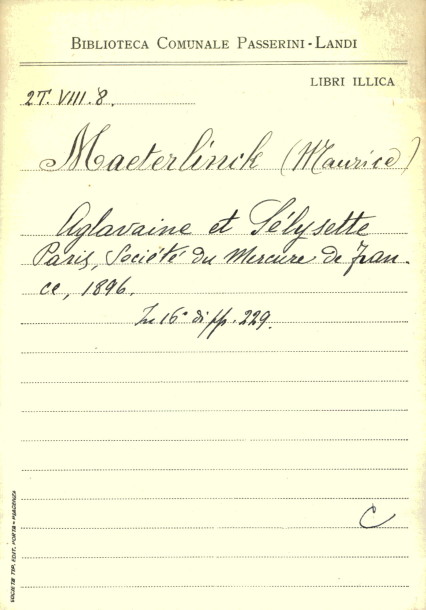 BIBLIOTECA COMUNALE PASSERINI-LANDI
LIBRI ILLICA
2T. VIII. 8.
Maeterlinck (Maurice)
Aglavaine et Sélysette
Paris, Société du Mercure de Fran-
ce, 1896.
In 16° di pp. 229.
C
SOCIETÀ TIP. EDIT. PORTA - PIACENZA